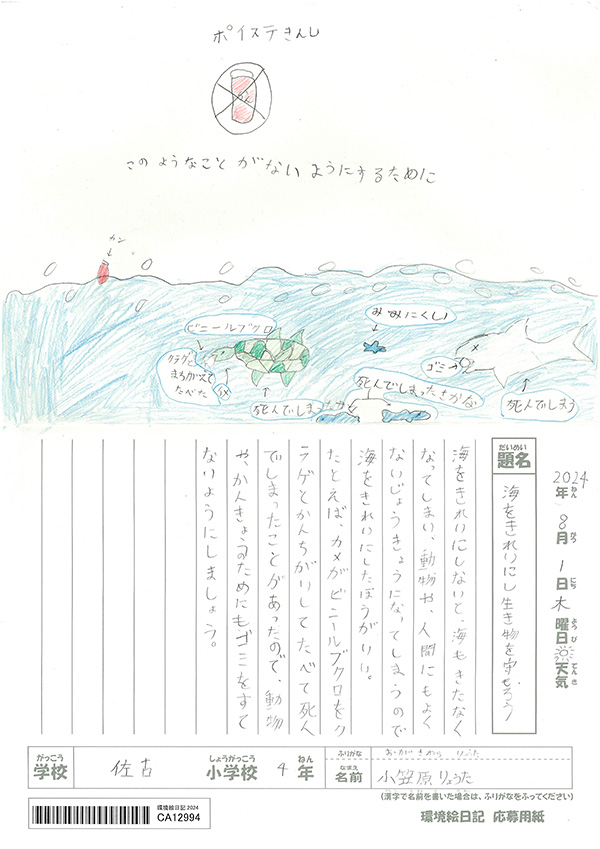 ポイステきんし
このようなことがないようにするために
カン
ビニールブクロ
クラゲと
まちがえて
たべた
みみにくい
ゴミ
死んでしまったさかな
死んでしまう
死んでしまったカメ
2024年 8月 1日 木曜日 天気
ねん がつ にち ようび てんき
だいめい
題名
海をきれいにし生き物を守ろう!
海をきれいにしないと、海もきたなく
なってしまい、動物や、人間にもよく
ないじょうきょうになってしまうので
海をきれいにしたほうがいい。
たとえば、カメがビニールブクロをク
ラゲとかんちがいしてたべて死ん
でしまったことがあったので、動物
や、かんきょうのためにもゴミをすて
ないようにしましょう。
がっこう しょうがっこう ねん
学校 佐古 小学校 4年
ふりがな おがさわら りょうた
なまえ
名前 小笠原りょうた
(漢字で名前を書いた場合は、ふりがなをふってください)
環境絵日記2024
CA12994
環境絵日記 応募用紙